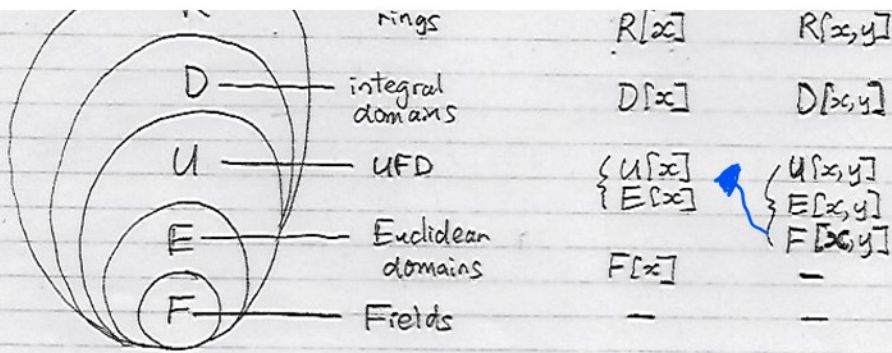 R rings R[x] R[x,y]
D integral domains D[x] D[x,y]
U UFD U[x] U[x,y]
E[x] E[x,y]
E Euclidean domains F[x] F[x,y]
–
F Fields – –